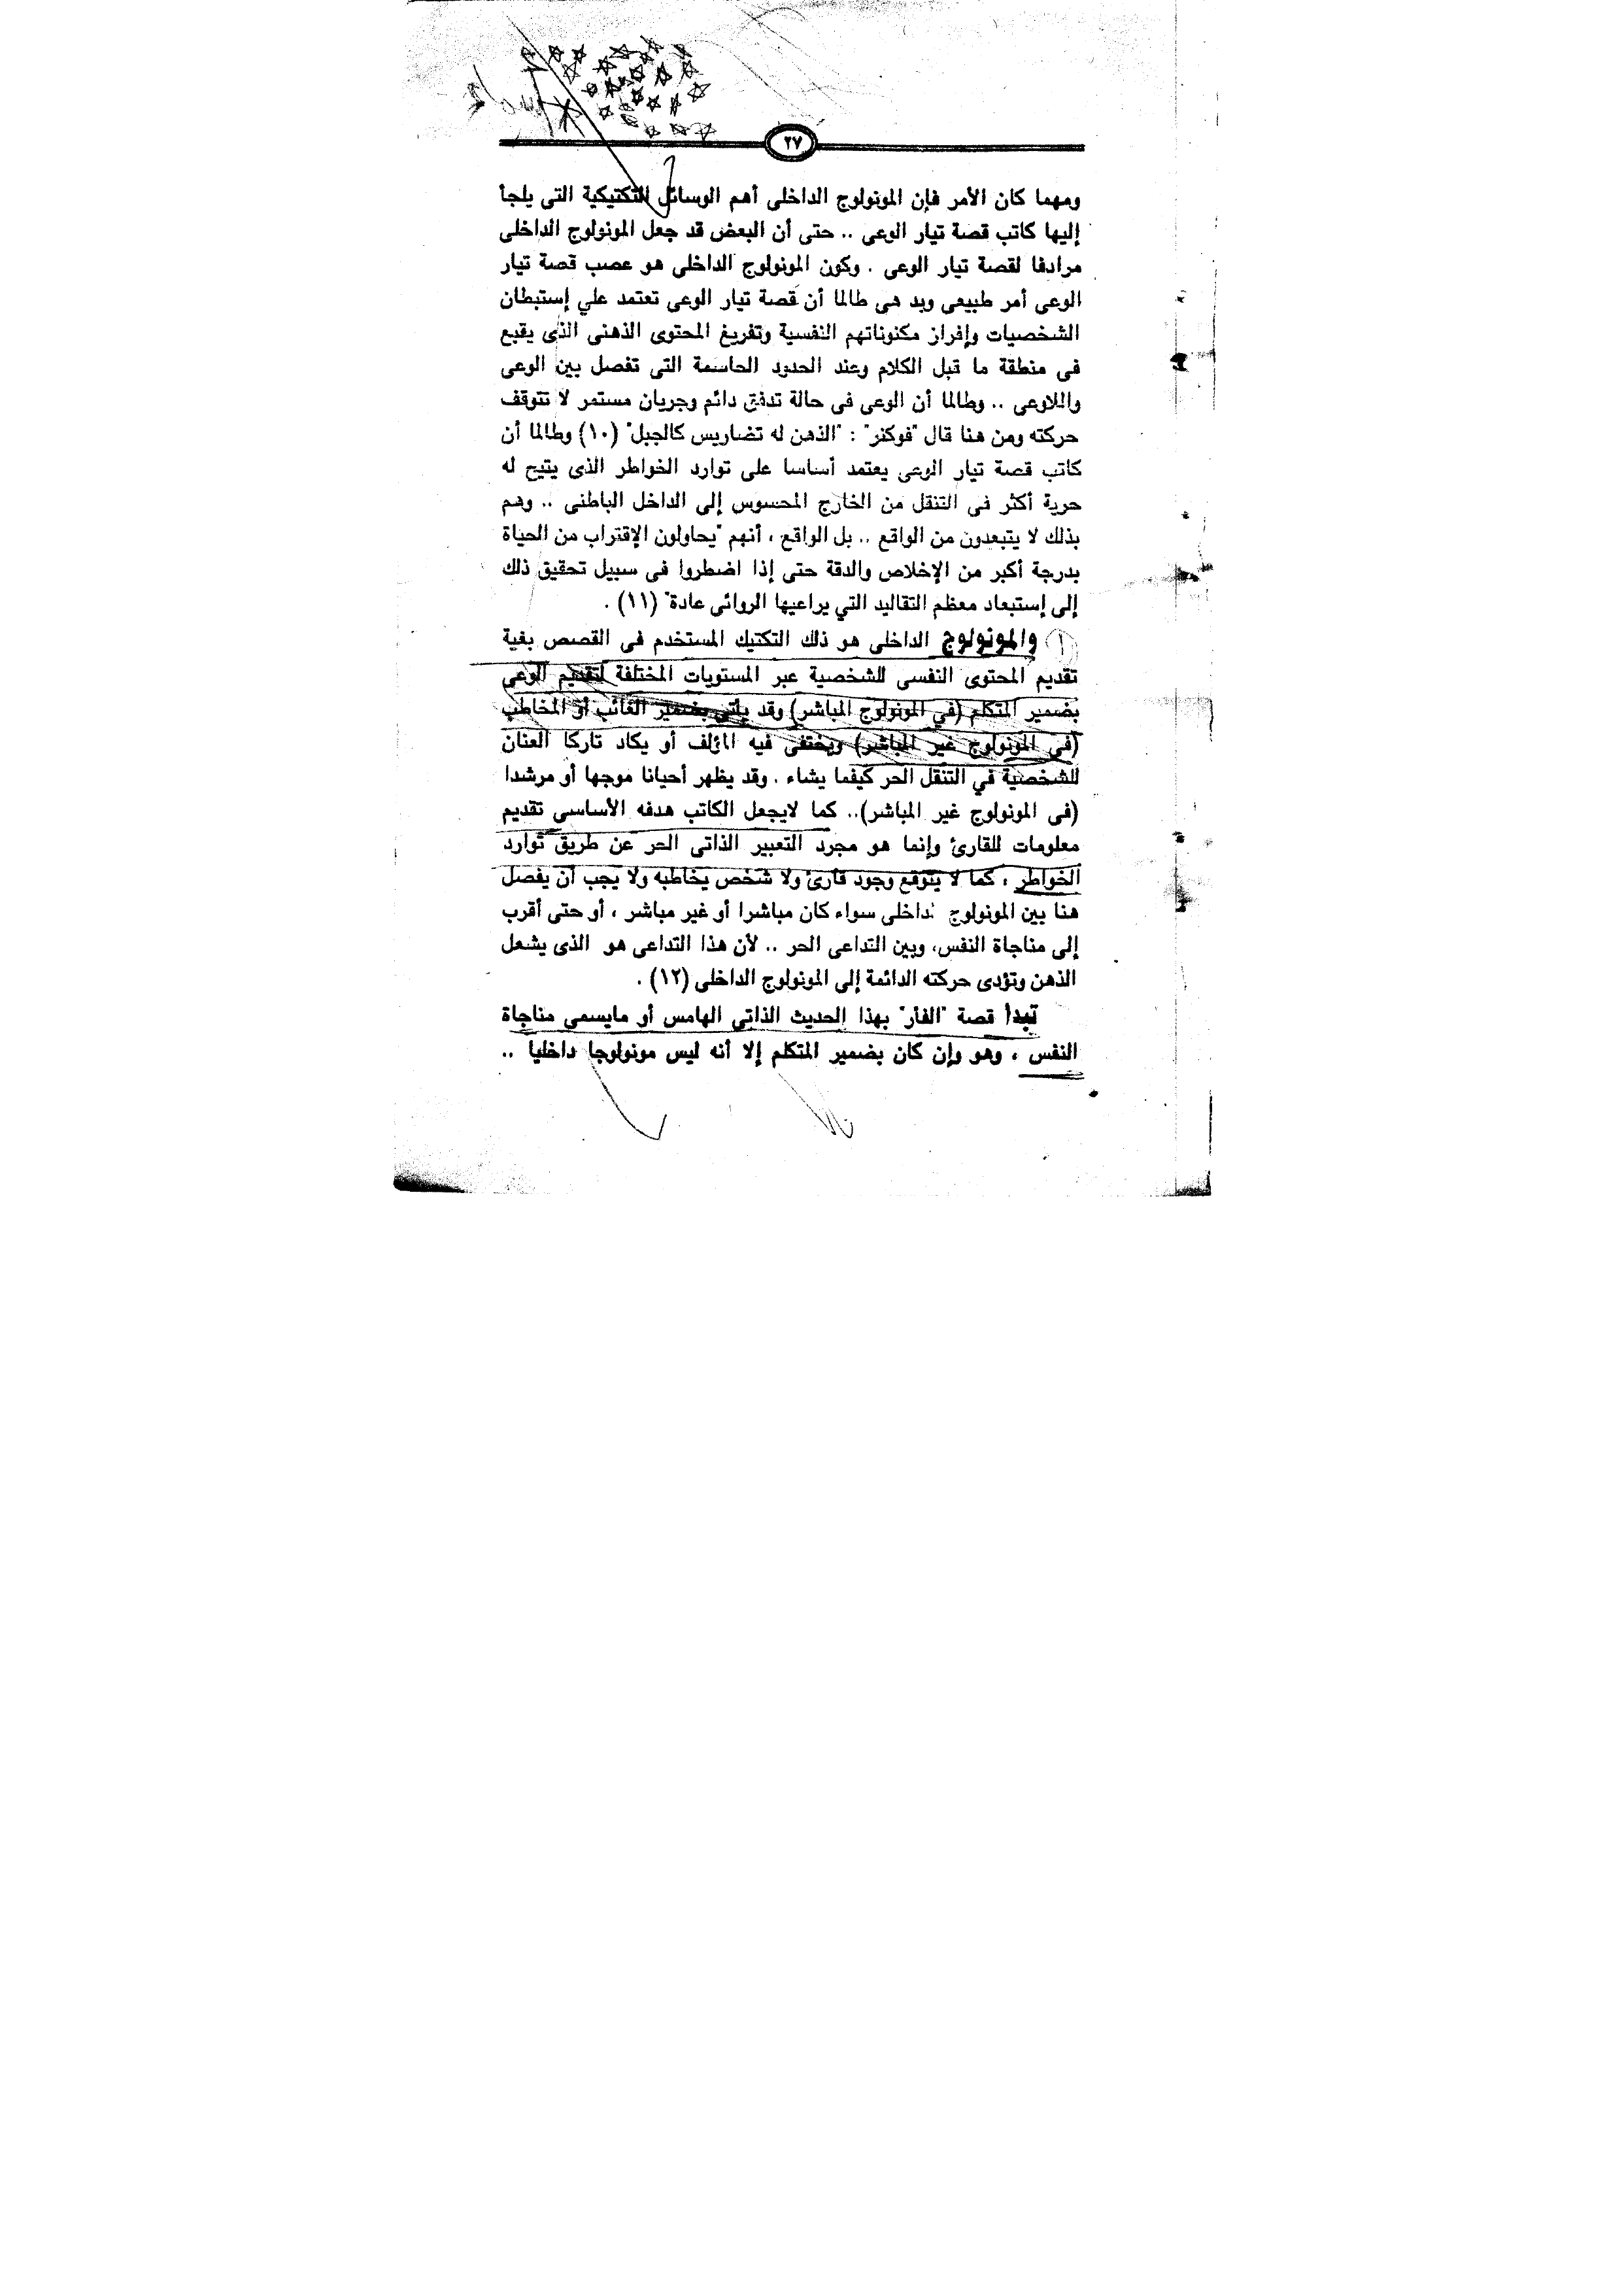 ٢٧
ومهما كان الأمر فإن المونولوج الداخلى أهم الوسائل التكتيكية التى يلجأ
إليها كاتب قصة تيار الوعى .. حتى أن البعض قد جعل المونولوج الداخلى
مرادفا لقصة تيار الوعى . وكون المونولوج الداخلى هو عصب قصة تيار
الوعى أمر طبيعى وبد هى طالما أن قصة تيار الوعى تعتمد علي إستبطان
الشخصيات وإفراز مكنوناتهم النفسية وتفريغ المحتوى الذهنى الذى يقبع
فى منطقة ما قبل الكلام وعند الحدود الحاسمة التى تفصل بين الوعى
واللاوعى .. وطالما أن الوعى فى حالة تدفق دائم وجريان مستمر لا تتوقف
حركته ومن هنا قال "فوكنر" : "الذهن له تضاريس كالجبل" (١٠) وطالما أن
كاتب قصة تيار الوعى يعتمد أساسا على توارد الخواطر الذى يتيح له
حرية أكثر فى التنقل من الخارج المحسوس إلى الداخل الباطنى .. وهم
بذلك لا يتبعدون من الواقع .. بل الواقع ، أنهم "يحاولون الإقتراب من الحياة
بدرجة أكبر من الإخلاص والدقة حتى إذا اضطروا فى سبيل تحقيق ذلك
إلى إستبعاد معظم التقاليد التي يراعيها الروائى عادة" (١١) .
١ والمونولوج الداخلى هو ذلك التكتيك المستخدم فى القصص بغية
تقديم المحتوى النفسى للشخصية عبر المستويات المختلفة لتقديم الوعى
بضمير المتكلم (في المونولوج المباشر) وقد يأتى بضمير الغائب أو المخاطب
(فى المونولوج غير المباشر) ويختفى فيه المؤلف أو يكاد تاركا العنان
للشخصية في التنقل الحر كيفما يشاء . وقد يظهر أحيانا موجها أو مرشدا
(فى المونولوج غير المباشر).. كما لايجعل الكاتب هدفه الأساسى تقديم
معلومات للقارئ وإنما هو مجرد التعبير الذاتى الحر عن طريق توارد
الخواطر ، كما لا يتوقع وجود قارئ ولا شخص يخاطبه ولا يجب أن يفصل
هنا بين المونولوج لداخلى سواء كان مباشرا أو غير مباشر ، أو حتى أقرب
إلى مناجاة النفس، وبين التداعى الحر .. لأن هذا التداعى هو الذى يشعل
الذهن وتؤدى حركته الدائمة إلى المونولوج الداخلى (١٢) .
تبدأ قصة "الفأر" بهذا الحديث الذاتى الهامس أو مايسمى مناجاة
النفس ، وهو وإن كان بضمير المتكلم إلا أنه ليس مونولوجا داخليا ..